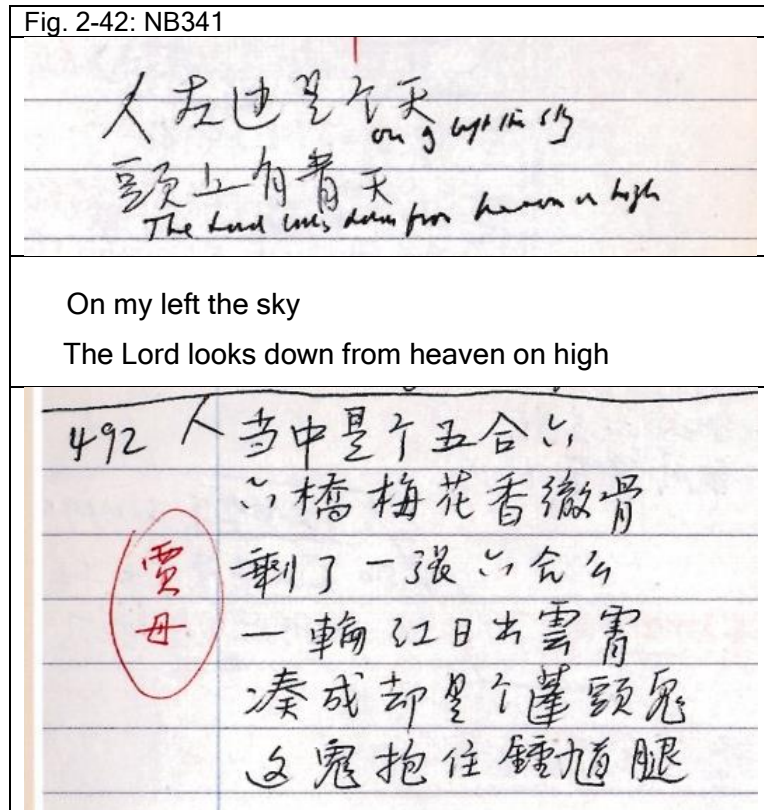 Fig. 2-42: NB341
人左边是个天
on my left the sky
頭上有青天
The Lord looks down from heaven on high
On my left the sky
The Lord looks down from heaven on high
492 人当中是个五合六
六橋梅花香徹骨
賈母
剩了一張六合么
一輪红日出雲霄
凑成却是个蓬頭鬼
这鬼抱住鍾馗腿